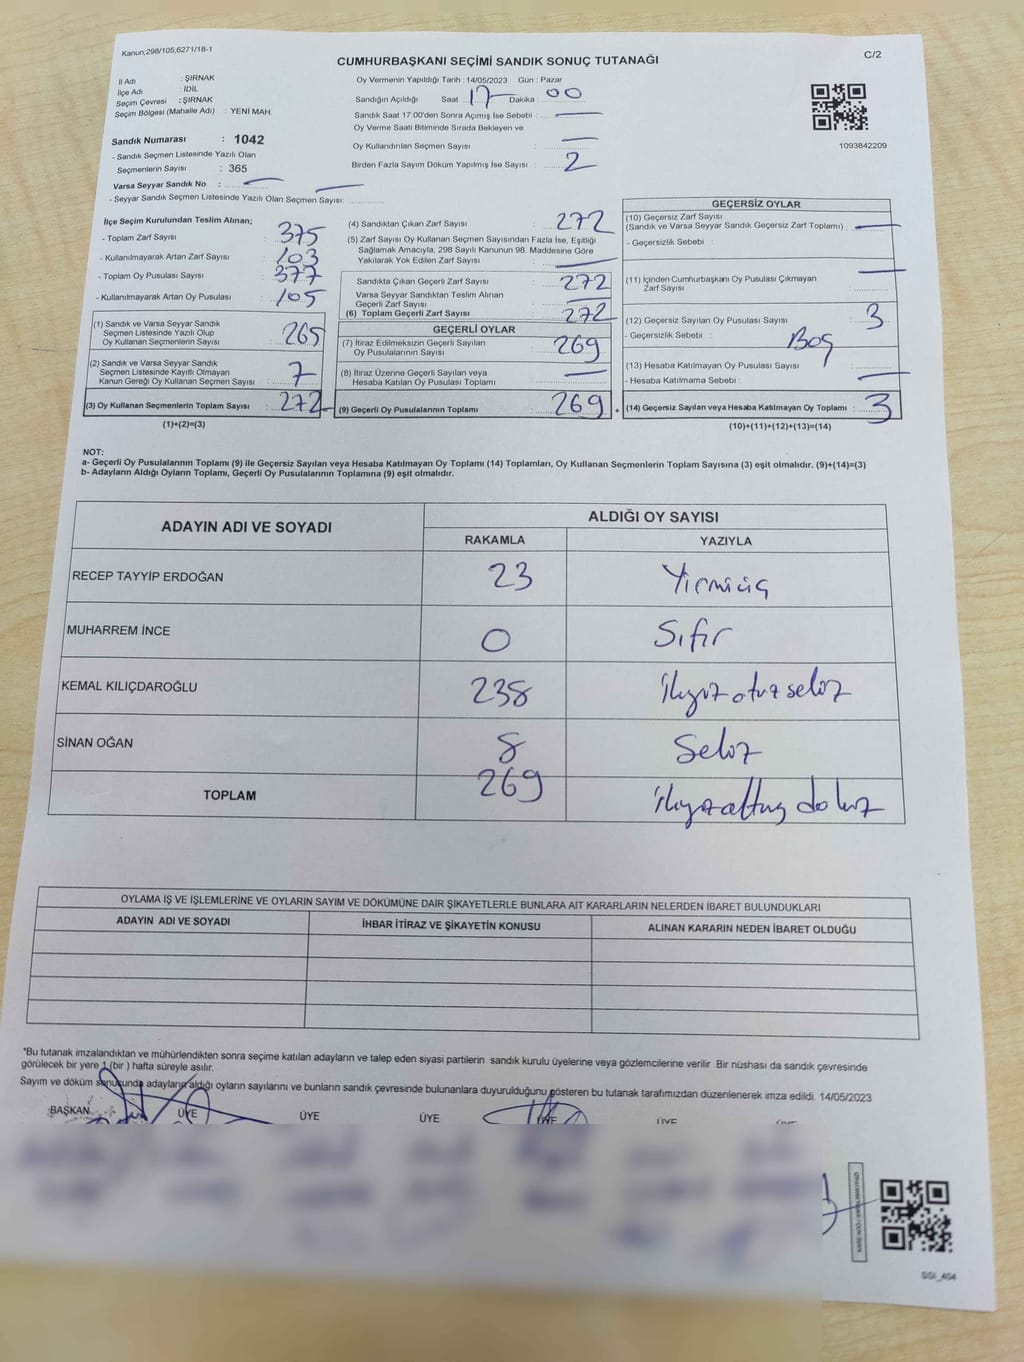 Kanun;298/105,6271/18-1
C/2
CUMHURBAŞKANI SEÇİMİ SANDIK SONUÇ TUTANAĞI
İl Adı : ŞIRNAK
İlçe Adı : İDİL
Seçim Çevresi : ŞIRNAK
Seçim Bölgesi (Mahalle Adı) : YENİ MAH.
Sandık Numarası : 1042
- Sandık Seçmen Listesinde Yazılı Olan
Seçmenlerin Sayısı : 365
Varsa Seyyar Sandık No : —
- Seyyar Sandık Seçmen Listesinde Yazılı Olan Seçmen Sayısı: —
Oy Vermenin Yapıldığı Tarih : 14/05/2023 Gün : Pazar
Sandığın Açıldığı Saat : 17 Dakika : 00
Sandık Saat 17.00'den Sonra Açımış İse Sebebi : —
Oy Verme Saati Bitiminde Sırada Bekleyen ve
Oy Kullandırılan Seçmen Sayısı : —
Birden Fazla Sayım Döküm Yapılmış İse Sayısı : 2
1093842209
İlçe Seçim Kurulundan Teslim Alınan;
- Toplam Zarf Sayısı : 375
- Kullanılmayarak Artan Zarf Sayısı : 103
- Toplam Oy Pusulası Sayısı : 377
- Kullanılmayarak Artan Oy Pusulası : 105
(1) Sandık ve Varsa Seyyar Sandık
Seçmen Listesinde Yazılı Olup
Oy Kullanan Seçmenlerin Sayısı : 265
(2) Sandık ve Varsa Seyyar Sandık
Seçmen Listesinde Kayıtlı Olmayan
Kanun Gereği Oy Kullanan Seçmen Sayısı : 7
(3) Oy Kullanan Seçmenlerin Toplam Sayısı : 272
(1)+(2)=(3)
(4) Sandıktan Çıkan Zarf Sayısı : 272
(5) Zarf Sayısı Oy Kullanan Seçmen Sayısından Fazla İse, Eşitliği
Sağlamak Amacıyla; 298 Sayılı Kanunun 98. Maddesine Göre
Yakılarak Yok Edilen Zarf Sayısı : —
Sandıkta Çıkan Geçerli Zarf Sayısı : 272
Varsa Seyyar Sandıktan Teslim Alınan
Geçerli Zarf Sayısı : —
(6) Toplam Geçerli Zarf Sayısı : 272
GEÇERLİ OYLAR
(7) İtiraz Edilmeksizin Geçerli Sayılan
Oy Pusulalarının Sayısı : 269
(8) İtiraz Üzerine Geçerli Sayılan veya
Hesaba Katılan Oy Pusulası Toplamı : —
(9) Geçerli Oy Pusulalarının Toplamı : 269 +
GEÇERSİZ OYLAR
(10) Geçersiz Zarf Sayısı
(Sandık ve Varsa Seyyar Sandık Geçersiz Zarf Toplamı) : —
- Geçersizlik Sebebi :
(11) İçinden Cumhurbaşkanı Oy Pusulası Çıkmayan
Zarf Sayısı : —
(12) Geçersiz Sayılan Oy Pusulası Sayısı : 3
- Geçersizlik Sebebi : Boş
(13) Hesaba Katılmayan Oy Pusulası Sayısı : —
- Hesaba Katılmama Sebebi :
(14) Geçersiz Sayılan veya Hesaba Katılmayan Oy Toplamı : 3
(10)+(11)+(12)+(13)=(14)
NOT:
a- Geçerli Oy Pusulalarının Toplamı (9) ile Geçersiz Sayılan veya Hesaba Katılmayan Oy Toplamı (14) Toplamları, Oy Kullanan Seçmenlerin Toplam Sayısına (3) eşit olmalıdır. (9)+(14)=(3)
b- Adayların Aldığı Oyların Toplamı, Geçerli Oy Pusulalarının Toplamına (9) eşit olmalıdır.
ADAYIN ADI VE SOYADI
ALDIĞI OY SAYISI
RAKAMLA YAZIYLA
RECEP TAYYİP ERDOĞAN 23 Yirmiüç
MUHARREM İNCE 0 Sıfır
KEMAL KILIÇDAROĞLU 238 İkiyüz otuz sekiz
SİNAN OĞAN 8 Sekiz
TOPLAM 269 İkiyüzaltmış dokuz
OYLAMA İŞ VE İŞLEMLERİNE VE OYLARIN SAYIM VE DÖKÜMÜNE DAİR ŞİKAYETLERLE BUNLARA AİT KARARLARIN NELERDEN İBARET BULUNDUKLARI
ADAYIN ADI VE SOYADI İHBAR İTİRAZ VE ŞİKAYETİN KONUSU ALINAN KARARIN NEDEN İBARET OLDUĞU
*Bu tutanak imzalandıktan ve mühürlendikten sonra seçime katılan adayların ve talep eden siyasi partilerin sandık kurulu üyelerine veya gözlemcilerine verilir. Bir nüshası da sandık çevresinde
görülecek bir yere 1 (bir ) hafta süreyle asılır.
Sayım ve döküm sonucunda adayların aldığı oyların sayılarını ve bunların sandık çevresinde bulunanlara duyurulduğunu gösteren bu tutanak tarafımızdan düzenlenerek imza edildi. 14/05/2023
BAŞKAN ÜYE ÜYE ÜYE ÜYE ÜYE